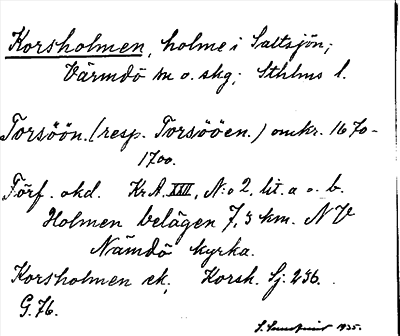 Korsholmen, holme i Saltsjön;
Värmdö sn o. skg; Sthlms l.
Torsöön. (resp. Torsööen.) omkr. 1670-
1700.
Förf. okd. Kr.A. XXII, N:o 2, lit. a o. b.
Holmen belägen 7,5 km. NV
Nämdö kyrka.
Korsholmen ek. Korsh. Sj: 256.
G. 76.
1935.